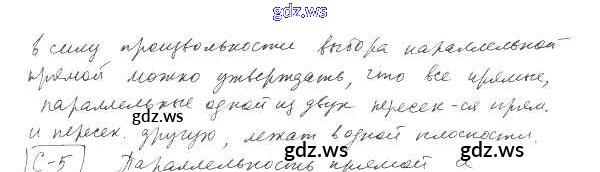 gdz.ws
в силу произвольности выбора параллельной
прямой можно утверждать, что все прямые,
параллельные одной из двух пересек-ся прям.
и пересек. другую, лежат в одной плоскости.
gdz.ws gdz.ws
С-5 Параллельность прямой
gdz.ws gdz.ws